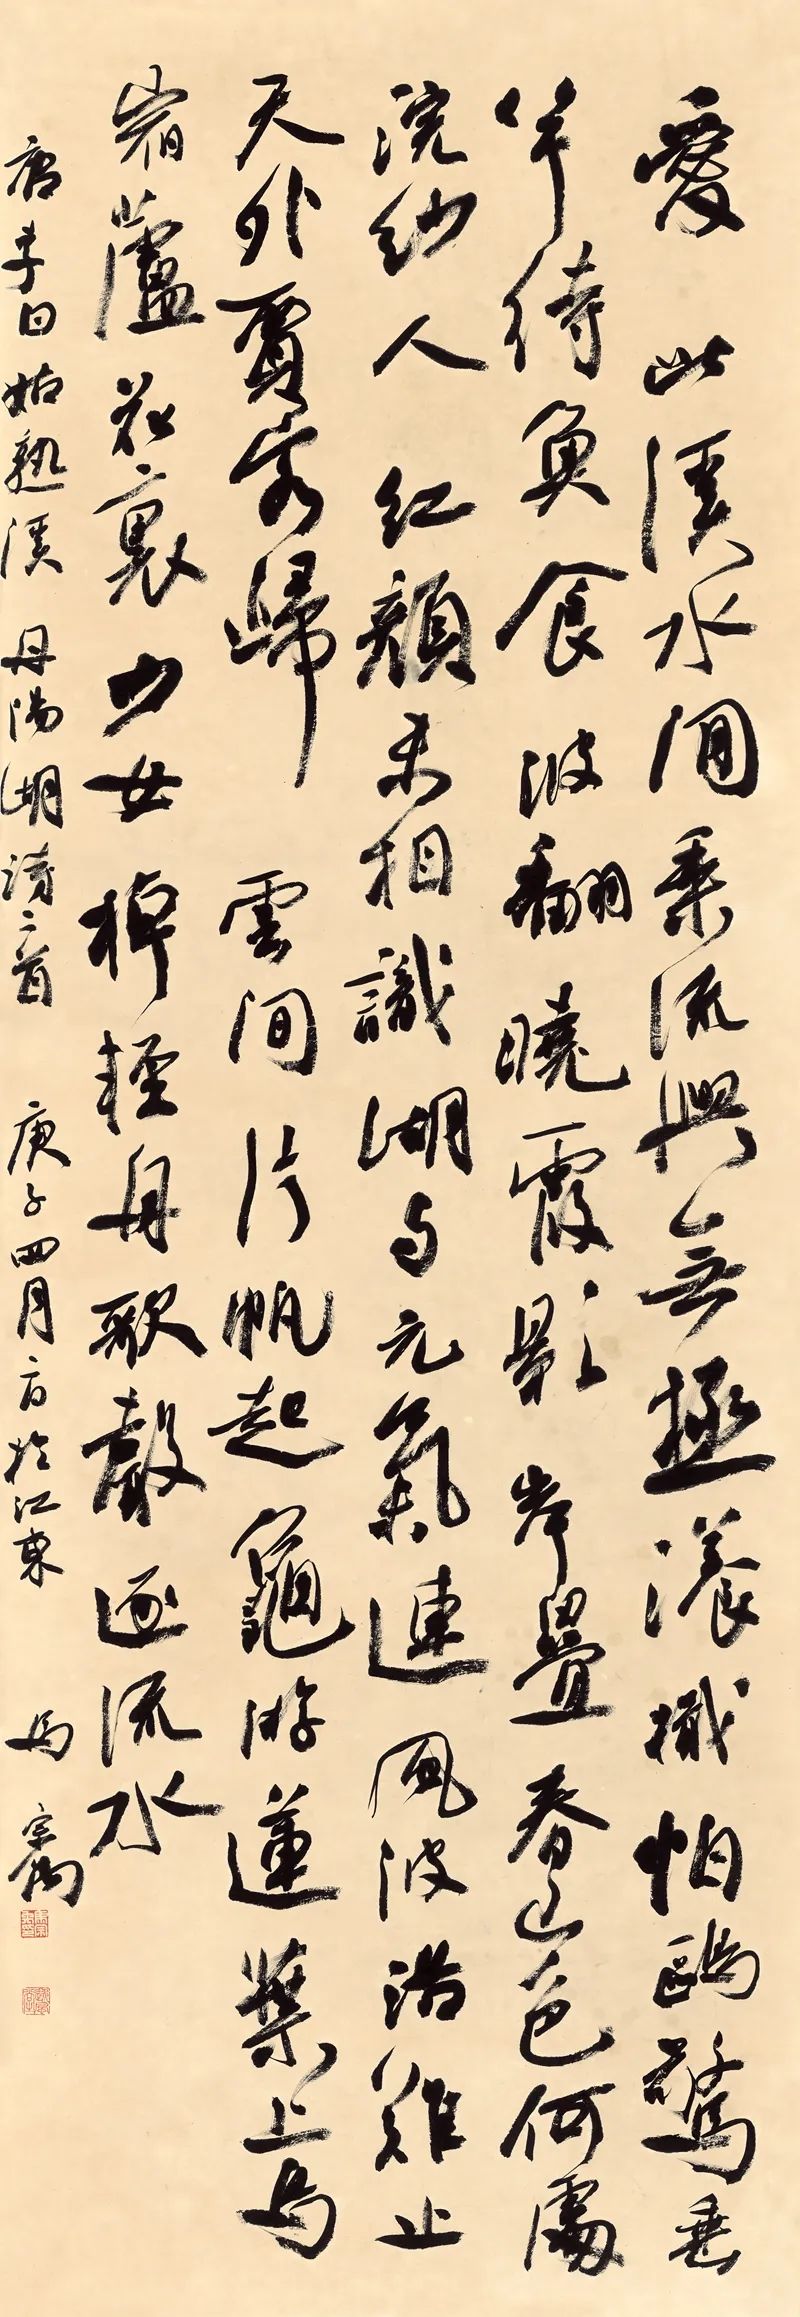 愛此溪水閒乘流興無極漾檝怕鷗驚垂
竿待魚食波翻曉霞影岸疊春山色何處
浣紗人紅顏未相識湖与元氣連風波浩難止
天外賈客歸雲間片帆起龜游蓮葉上鳥
宿蘆花裏少女棹輕舟歌聲逐流水
唐李白姑熟溪丹陽湖詩二首 庚子四月於江東 馬